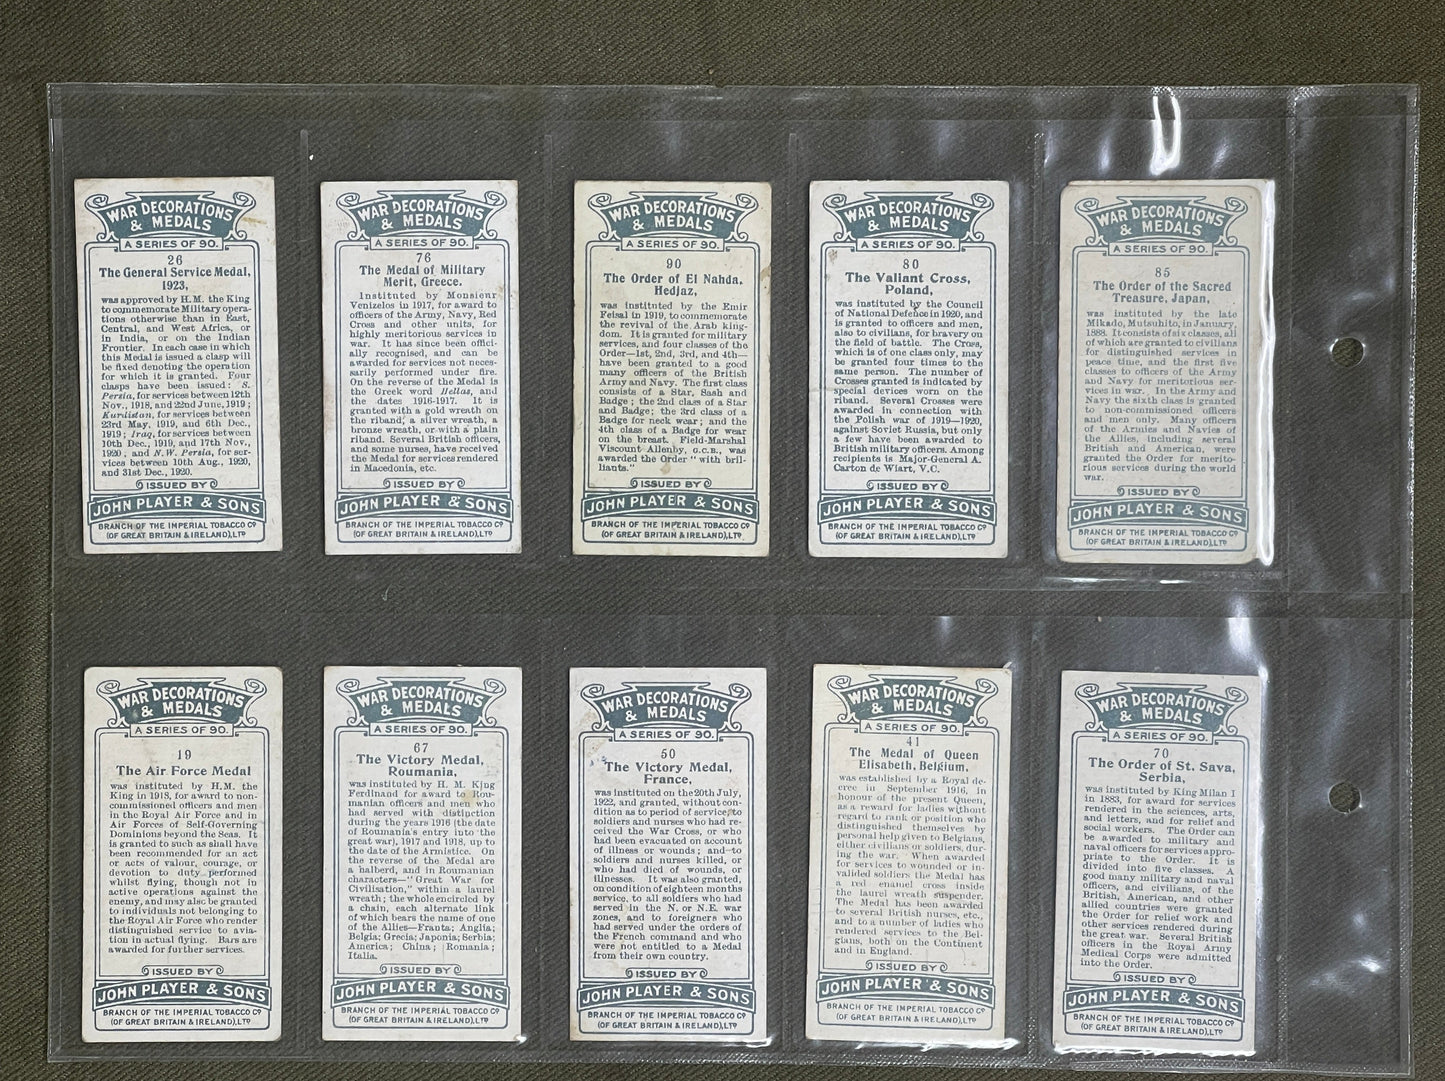 WAR DECORATIONS
& MEDALS
A SERIES OF 90.
26
The General Service Medal,
1923,
was approved by H.M. the King
to commemorate Military opera-
tions otherwise than in East,
Central, and West Africa, or
in India, or on the Indian
Frontier. In each case in which
this Medal is issued a clasp will
be fixed denoting the operation
for which it is granted. Four
clasps have been issued: S.
Persia, for services between 12th
Nov., 1918, and 22nd June, 1919;
Kurdistan, for services between
23rd May, 1919, and 6th Dec.,
1919; Iraq, for services between
10th Dec., 1919, and 17th Nov.,
1920, and N.W. Persia, for ser-
vices between 10th Aug., 1920,
and 31st Dec., 1920.
ISSUED BY
JOHN PLAYER & SONS
BRANCH OF THE IMPERIAL TOBACCO Co
(OF GREAT BRITAIN & IRELAND), LTD
WAR DECORATIONS
& MEDALS
A SERIES OF 90.
76
The Medal of Military
Merit, Greece.
Instituted by Monsieur
Venizelos in 1917, for award to
officers of the Army, Navy, Red
Cross and other units, for
highly meritorious services in
war. It has since been offici-
ally recognised, and can be
awarded for services not neces-
sarily performed under fire.
On the reverse of the Medal is
the Greek word Hellas, and
the dates 1916-1917. It is
granted with a gold wreath on
the riband, a silver wreath, a
bronze wreath, or with a plain
riband. Several British officers,
and some nurses, have received
the Medal for services rendered
in Macedonia, etc.
ISSUED BY
JOHN PLAYER & SONS
BRANCH OF THE IMPERIAL TOBACCO Co
(OF GREAT BRITAIN & IRELAND), LTD
WAR DECORATIONS
& MEDALS
A SERIES OF 90.
90
The Order of El Nahda,
Hedjaz,
was instituted by the Emir
Feisal in 1919, to commemorate
the revival of the Arab king-
dom. It is granted for military
services, and four classes of the
Order—1st, 2nd, 3rd, and 4th—
have been granted to a good
many officers of the British
Army and Navy. The first class
consists of a Star, Sash and
Badge; the 2nd class of a Star
and Badge; the 3rd class of a
Badge for neck wear; and the
4th class of a Badge for wear
on the breast. Field-Marshal
Viscount Allenby, G.C.B., was
awarded the Order "with bril-
liants."
ISSUED BY
JOHN PLAYER & SONS
BRANCH OF THE IMPERIAL TOBACCO Co
(OF GREAT BRITAIN & IRELAND), LTD
WAR DECORATIONS
& MEDALS
A SERIES OF 90.
80
The Valiant Cross,
Poland,
was instituted by the Council
of National Defence in 1920, and
is granted to officers and men,
also to civilians, for bravery on
the field of battle. The Cross,
which is of one class only, may
be granted four times to the
same person. The number of
Crosses granted is indicated by
special devices worn on the
riband. Several Crosses were
awarded in connection with
the Polish war of 1919—1920,
against Soviet Russia, but only
a few have been awarded to
British military officers. Among
recipients is Major-General A.
Carton de Wiart, V.C.
ISSUED BY
JOHN PLAYER & SONS
BRANCH OF THE IMPERIAL TOBACCO Co
(OF GREAT BRITAIN & IRELAND), LTD
WAR DECORATIONS
& MEDALS
A SERIES OF 90.
85
The Order of the Sacred
Treasure, Japan,
was instituted by the late
Mikado, Mutsuhito, in January,
1888. It consists of six classes, all
of which are granted to civilians
for distinguished services in
peace time, and the first five
classes to officers of the Army
and Navy for meritorious ser-
vices in war. In the Army and
Navy the sixth class is granted
to non-commissioned officers
and men only. Many officers
of the Armies and Navies of
the Allies, including several
British and American, were
granted the Order for merito-
rious services during the world
war.
ISSUED BY
JOHN PLAYER & SONS
BRANCH OF THE IMPERIAL TOBACCO Co
(OF GREAT BRITAIN & IRELAND), LTD
WAR DECORATIONS
& MEDALS
A SERIES OF 90.
19
The Air Force Medal
was instituted by H.M. the
King in 1918, for award to non-
commissioned officers and men
in the Royal Air Force and in
Air Forces of Self-Governing
Dominions beyond the Seas. It
is granted to such as shall have
been recommended for an act
or acts of valour, courage, or
devotion to duty performed
whilst flying, though not in
active operations against the
enemy, and may also be granted
to individuals not belonging to
the Royal Air Force who render
distinguished service to avia-
tion in actual flying. Bars are
awarded for further services.
ISSUED BY
JOHN PLAYER & SONS
BRANCH OF THE IMPERIAL TOBACCO Co
(OF GREAT BRITAIN & IRELAND), LTD
WAR DECORATIONS
& MEDALS
A SERIES OF 90.
67
The Victory Medal,
Roumania,
was instituted by H. M. King
Ferdinand for award to Rou-
manian officers and men who
had served with distinction
during the years 1916 (the date
of Roumania's entry into the
great war), 1917 and 1918, up to
the date of the Armistice. On
the reverse of the Medal are
a halberd, and in Roumanian
characters—"Great War for
Civilisation," within a laurel
wreath; the whole encircled by
a chain, each alternate link
of which bears the name of one
of the Allies—Franta; Anglia;
Belgia; Grecia; Japonia; Serbia;
America; China; Romania;
Italia.
ISSUED BY
JOHN PLAYER & SONS
BRANCH OF THE IMPERIAL TOBACCO Co
(OF GREAT BRITAIN & IRELAND), LTD
WAR DECORATIONS
& MEDALS
A SERIES OF 90.
50
The Victory Medal,
France,
was instituted on the 20th July,
1922, and granted, without con-
dition as to period of service, to
soldiers and nurses who had re-
ceived the War Cross, or who
had been evacuated on account
of illness or wounds; and to
soldiers and nurses killed, or
who had died of wounds, or
illnesses. It was also granted,
on condition of eighteen months
service, to all soldiers who had
served in the N. or N.E. war
zones, and to foreigners who
had served under the orders of
the French command and who
were not entitled to a Medal
from their own country.
ISSUED BY
JOHN PLAYER & SONS
BRANCH OF THE IMPERIAL TOBACCO Co
(OF GREAT BRITAIN & IRELAND), LTD
WAR DECORATIONS
& MEDALS
A SERIES OF 90.
41
The Medal of Queen
Elisabeth, Belgium,
was established by a Royal de-
cree in September 1916, in
honour of the present Queen,
as a reward for ladies without
regard to rank or position who
distinguished themselves by
personal help given to Belgians,
either civilians or soldiers, dur-
ing the war. When awarded
for services to wounded or in-
valided soldiers the Medal has
a red enamel cross inside
the laurel wreath suspender.
The Medal has been awarded
to several British nurses, etc.,
and to a number of ladies who
rendered services to the Bel-
gians, both on the Continent
and in England.
ISSUED BY
JOHN PLAYER & SONS
BRANCH OF THE IMPERIAL TOBACCO Co
(OF GREAT BRITAIN & IRELAND), LTD
WAR DECORATIONS
& MEDALS
A SERIES OF 90.
70
The Order of St. Sava,
Serbia,
was instituted by King Milan I
in 1883, for award for services
rendered in the sciences, arts,
and letters, and for relief and
social workers. The Order can
be awarded to military and
naval officers for services appro-
priate to the Order. It is
divided into five classes. A
good many military and naval
officers, and civilians, of the
British, American, and other
allied countries were granted
the Order for relief work and
other services rendered during
the great war. Several British
officers in the Royal Army
Medical Corps were admitted
into the Order.
ISSUED BY
JOHN PLAYER & SONS
BRANCH OF THE IMPERIAL TOBACCO Co
(OF GREAT BRITAIN & IRELAND), LTD